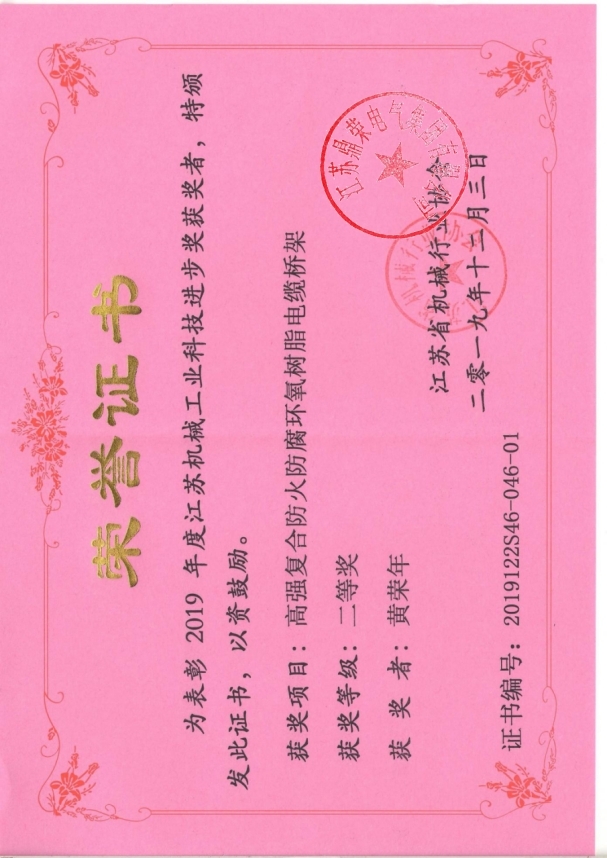 荣誉证书
为表彰 2019 年度江苏机械工业科技进步奖获奖者，特颁
发此证书，以资鼓励。
获奖项目：高强复合防火防腐环氧树脂电缆桥架
获奖等级：二等奖
获 奖 者：黄荣年
江苏省机械行业协会
二零一九年十二月三日
证书编号：2019122S46-046-01
江苏鼎荣电气集团有限公司